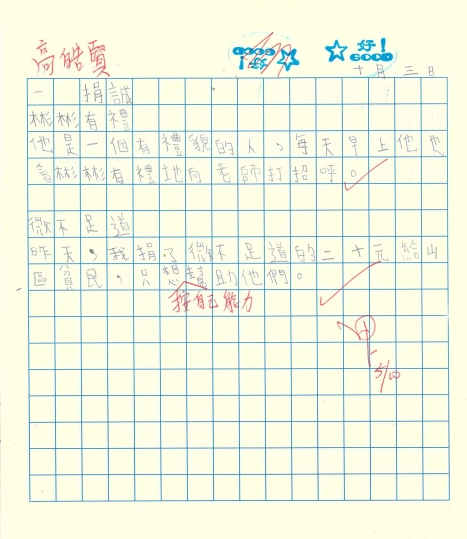 高皓賢
好! GOOD
十月三日
一 捐誠
彬彬有禮
他是一個有禮貌的人，每天早上他也
會彬彬有禮地向老師打招呼。
微不足道
昨天，我捐了微不足道的二十元給山
區貧民，只想幫助他們。
按自己能力
甲
5/10